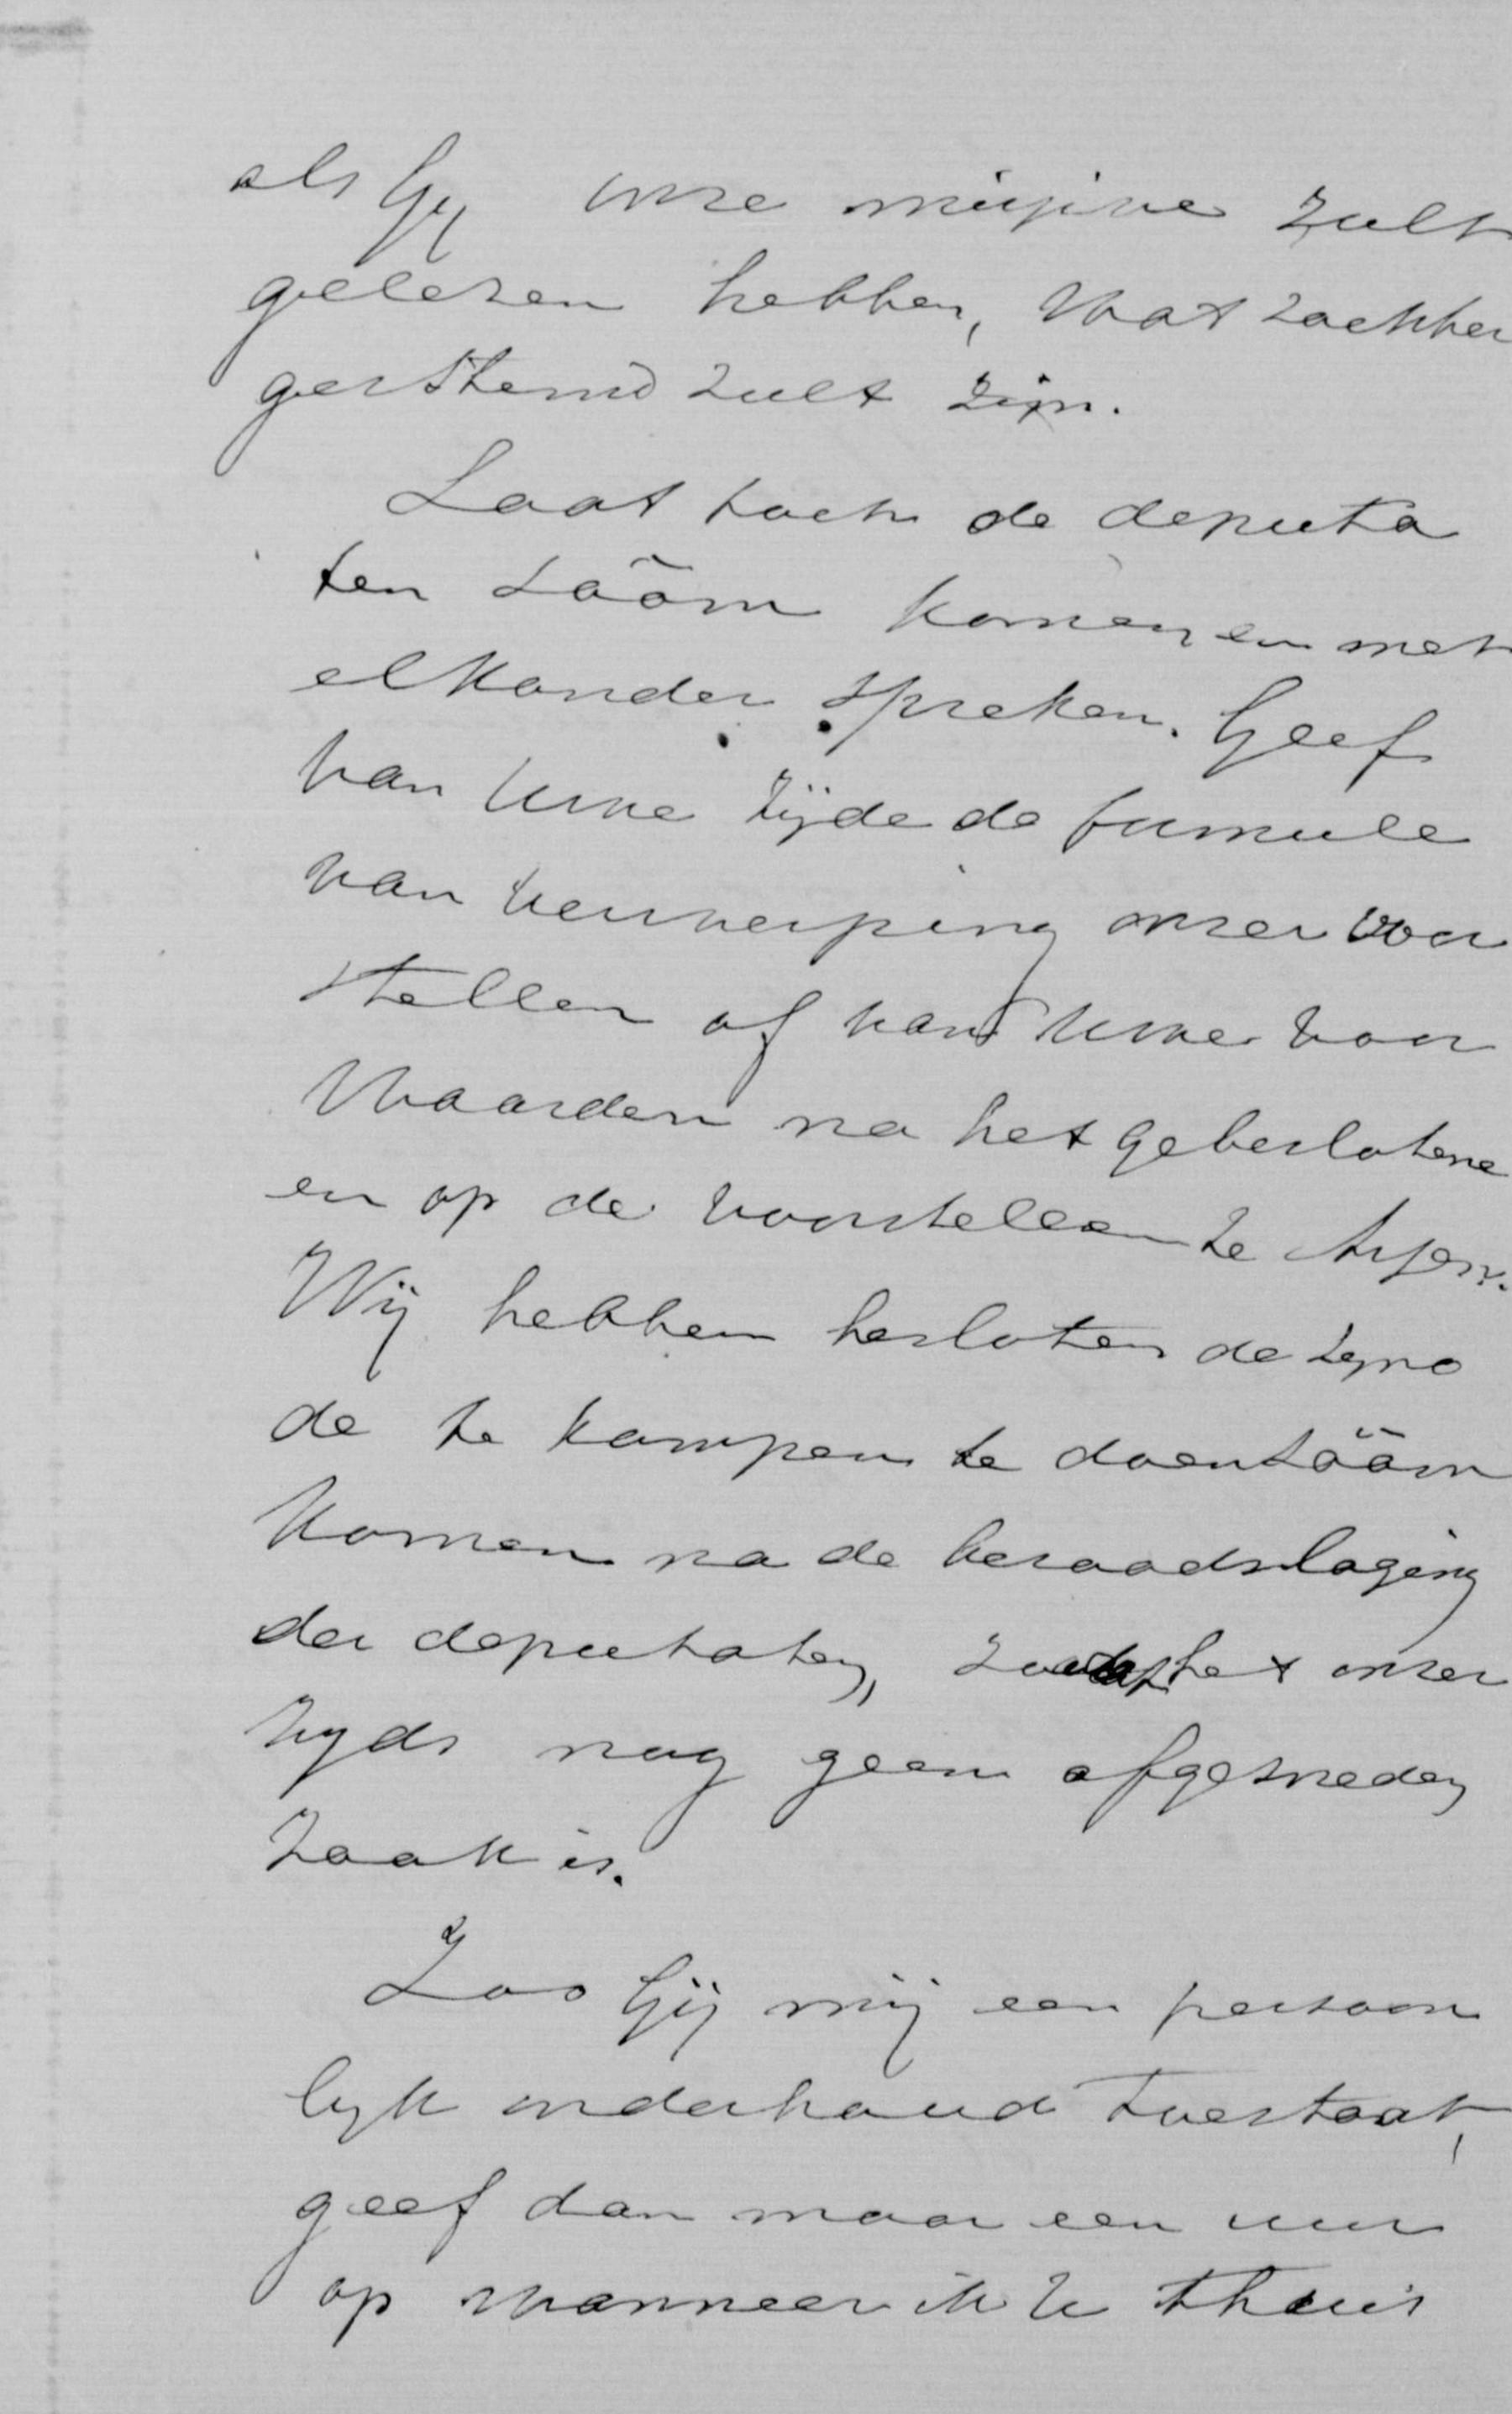 als Gij onze missive zult
gelezen hebben, wat zachter
gestemd zult zijn.
Laat toch de deputa
ten zããm komen en met
elkander spreken. Geef
van Uwe zijde de formule
van verwerping onzer voor
stellen of van Uwe voor
waarden na het gebeslotene
en op de voorstellen te
Wij hebben besloten de Syno
de te Kampen te doen zããm
komen na de beraadslaging
der deputaten, zoodat het onzer
zijds nog geen afgesneden
zaak is.
Zoo Gij mij een persoon
lijk onderhoud toestaat,
geef dan maar een uur
op wanneer ik U thuis